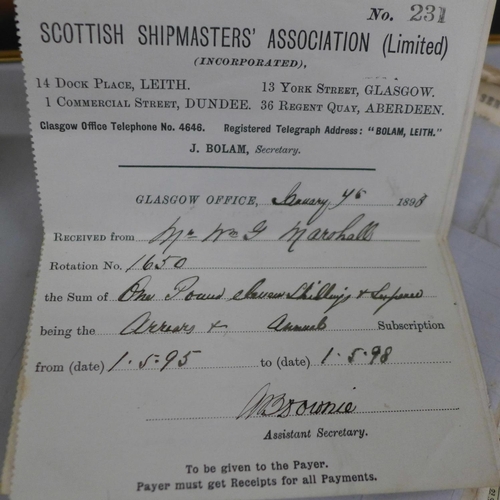 No. 231
SCOTTISH SHIPMASTERS' ASSOCIATION (Limited)
(INCORPORATED),
14 DOCK PLACE, LEITH. 13 YORK STREET, GLASGOW.
1 COMMERCIAL STREET, DUNDEE. 36 REGENT QUAY, ABERDEEN.
Glasgow Office Telephone No. 4646. Registered Telegraph Address: "BOLAM, LEITH."
J. BOLAM, Secretary.
GLASGOW OFFICE, January 189
RECEIVED from Mr Wm G Marshall
Rotation No. 1650
the Sum of One Pound Shillings &
being the Arrears & Annual Subscription
from (date) 1.5.95 to (date) 1.5.98
Downie
Assistant Secretary.
To be given to the Payer.
Payer must get Receipts for all Payments.